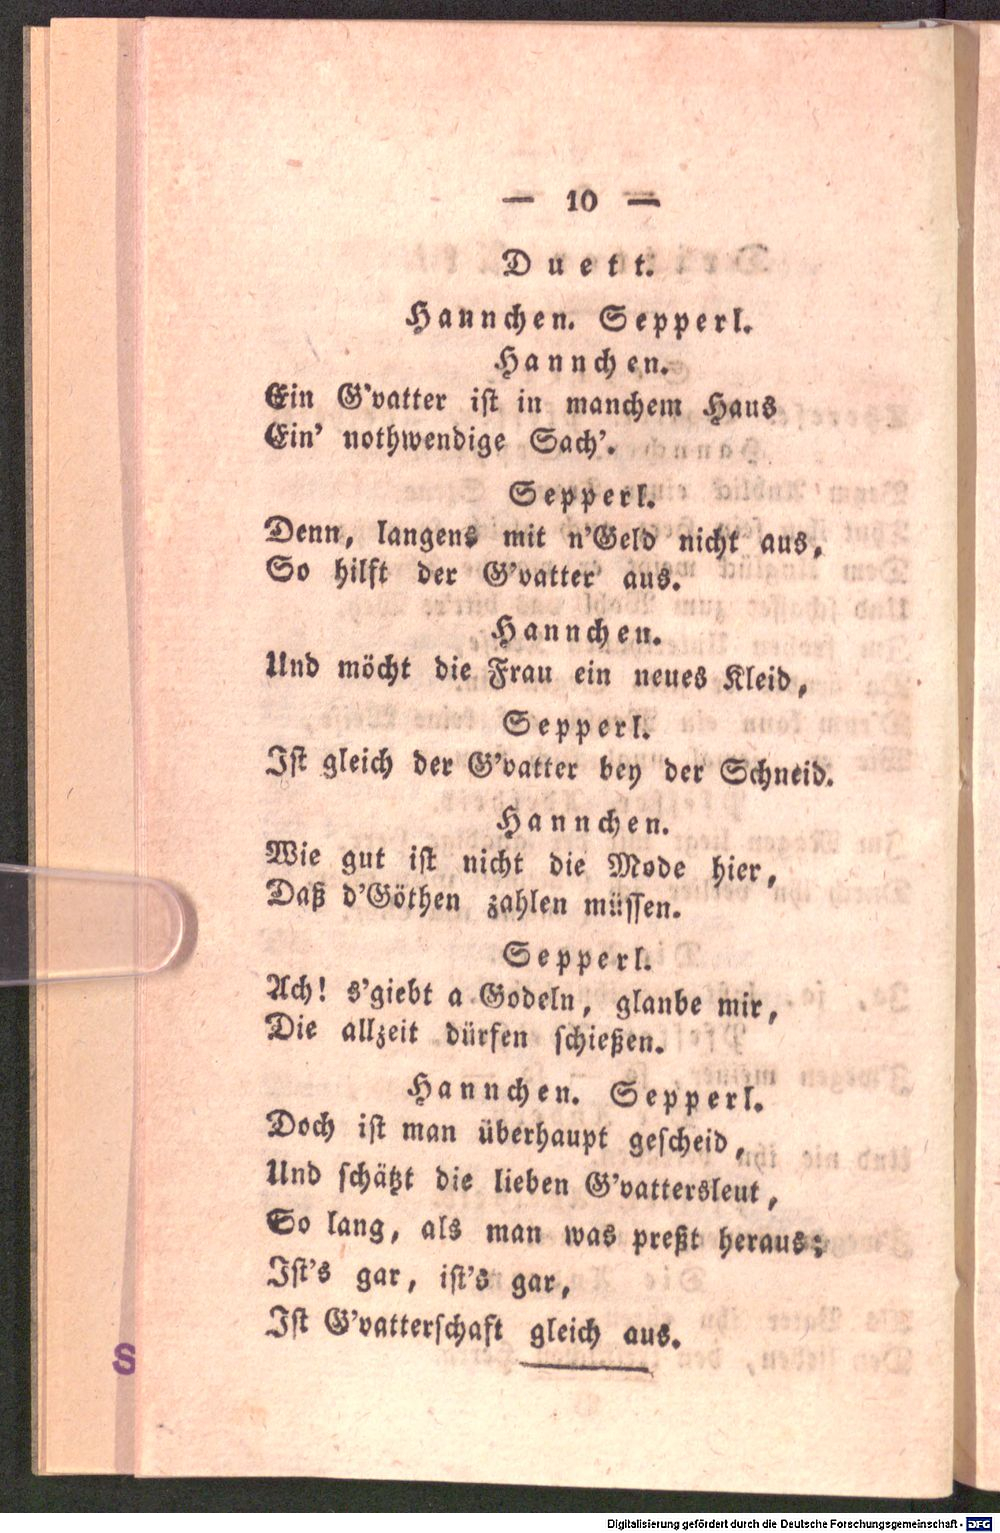 — 10 —
Duett.
Hannchen. Sepperl.
Hannchen.
Ein G'vatter ist in manchem Haus
Ein' nothwendige Sach'.
Sepperl.
Denn, langens mit n'Geld nicht aus,
So hilft der G'vatter aus.
Hannchen.
Und möcht die Frau ein neues Kleid,
Sepperl.
Ist gleich der G'vatter bey der Schneid.
Hannchen.
Wie gut ist nicht die Mode hier,
Daß d'Göthen zahlen müssen.
Sepperl.
Ach! s'giebt a Godeln, glaube mir,
Die allzeit dürfen schießen.
Hannchen. Sepperl.
Doch ist man überhaupt gescheid,
Und schätzt die lieben G'vattersleut,
So lang, als man was preßt heraus;
Ist's gar, ist's gar,
Ist G'vatterschaft gleich aus.
S
Digitalisierung gefördert durch die Deutsche Forschungsgemeinschaft - DFG